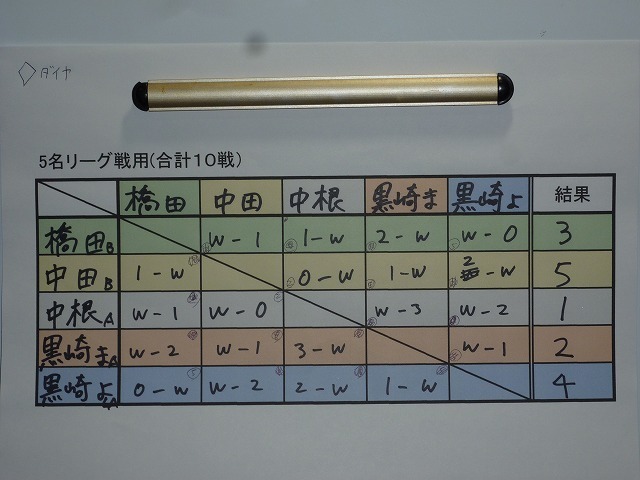 ◇ダイヤ
5名リーグ戦用(合計10戦)
橋田 中田 中根 黒崎ま 黒崎よ 結果
橋田B W-1 1-W 2-W W-0 3
中田B 1-W 0-W 1-W 2-W 5
中根A W-1 W-0 W-3 W-2 1
黒崎まA W-2 W-1 3-W W-1 2
黒崎よA 0-W W-2 2-W 1-W 4